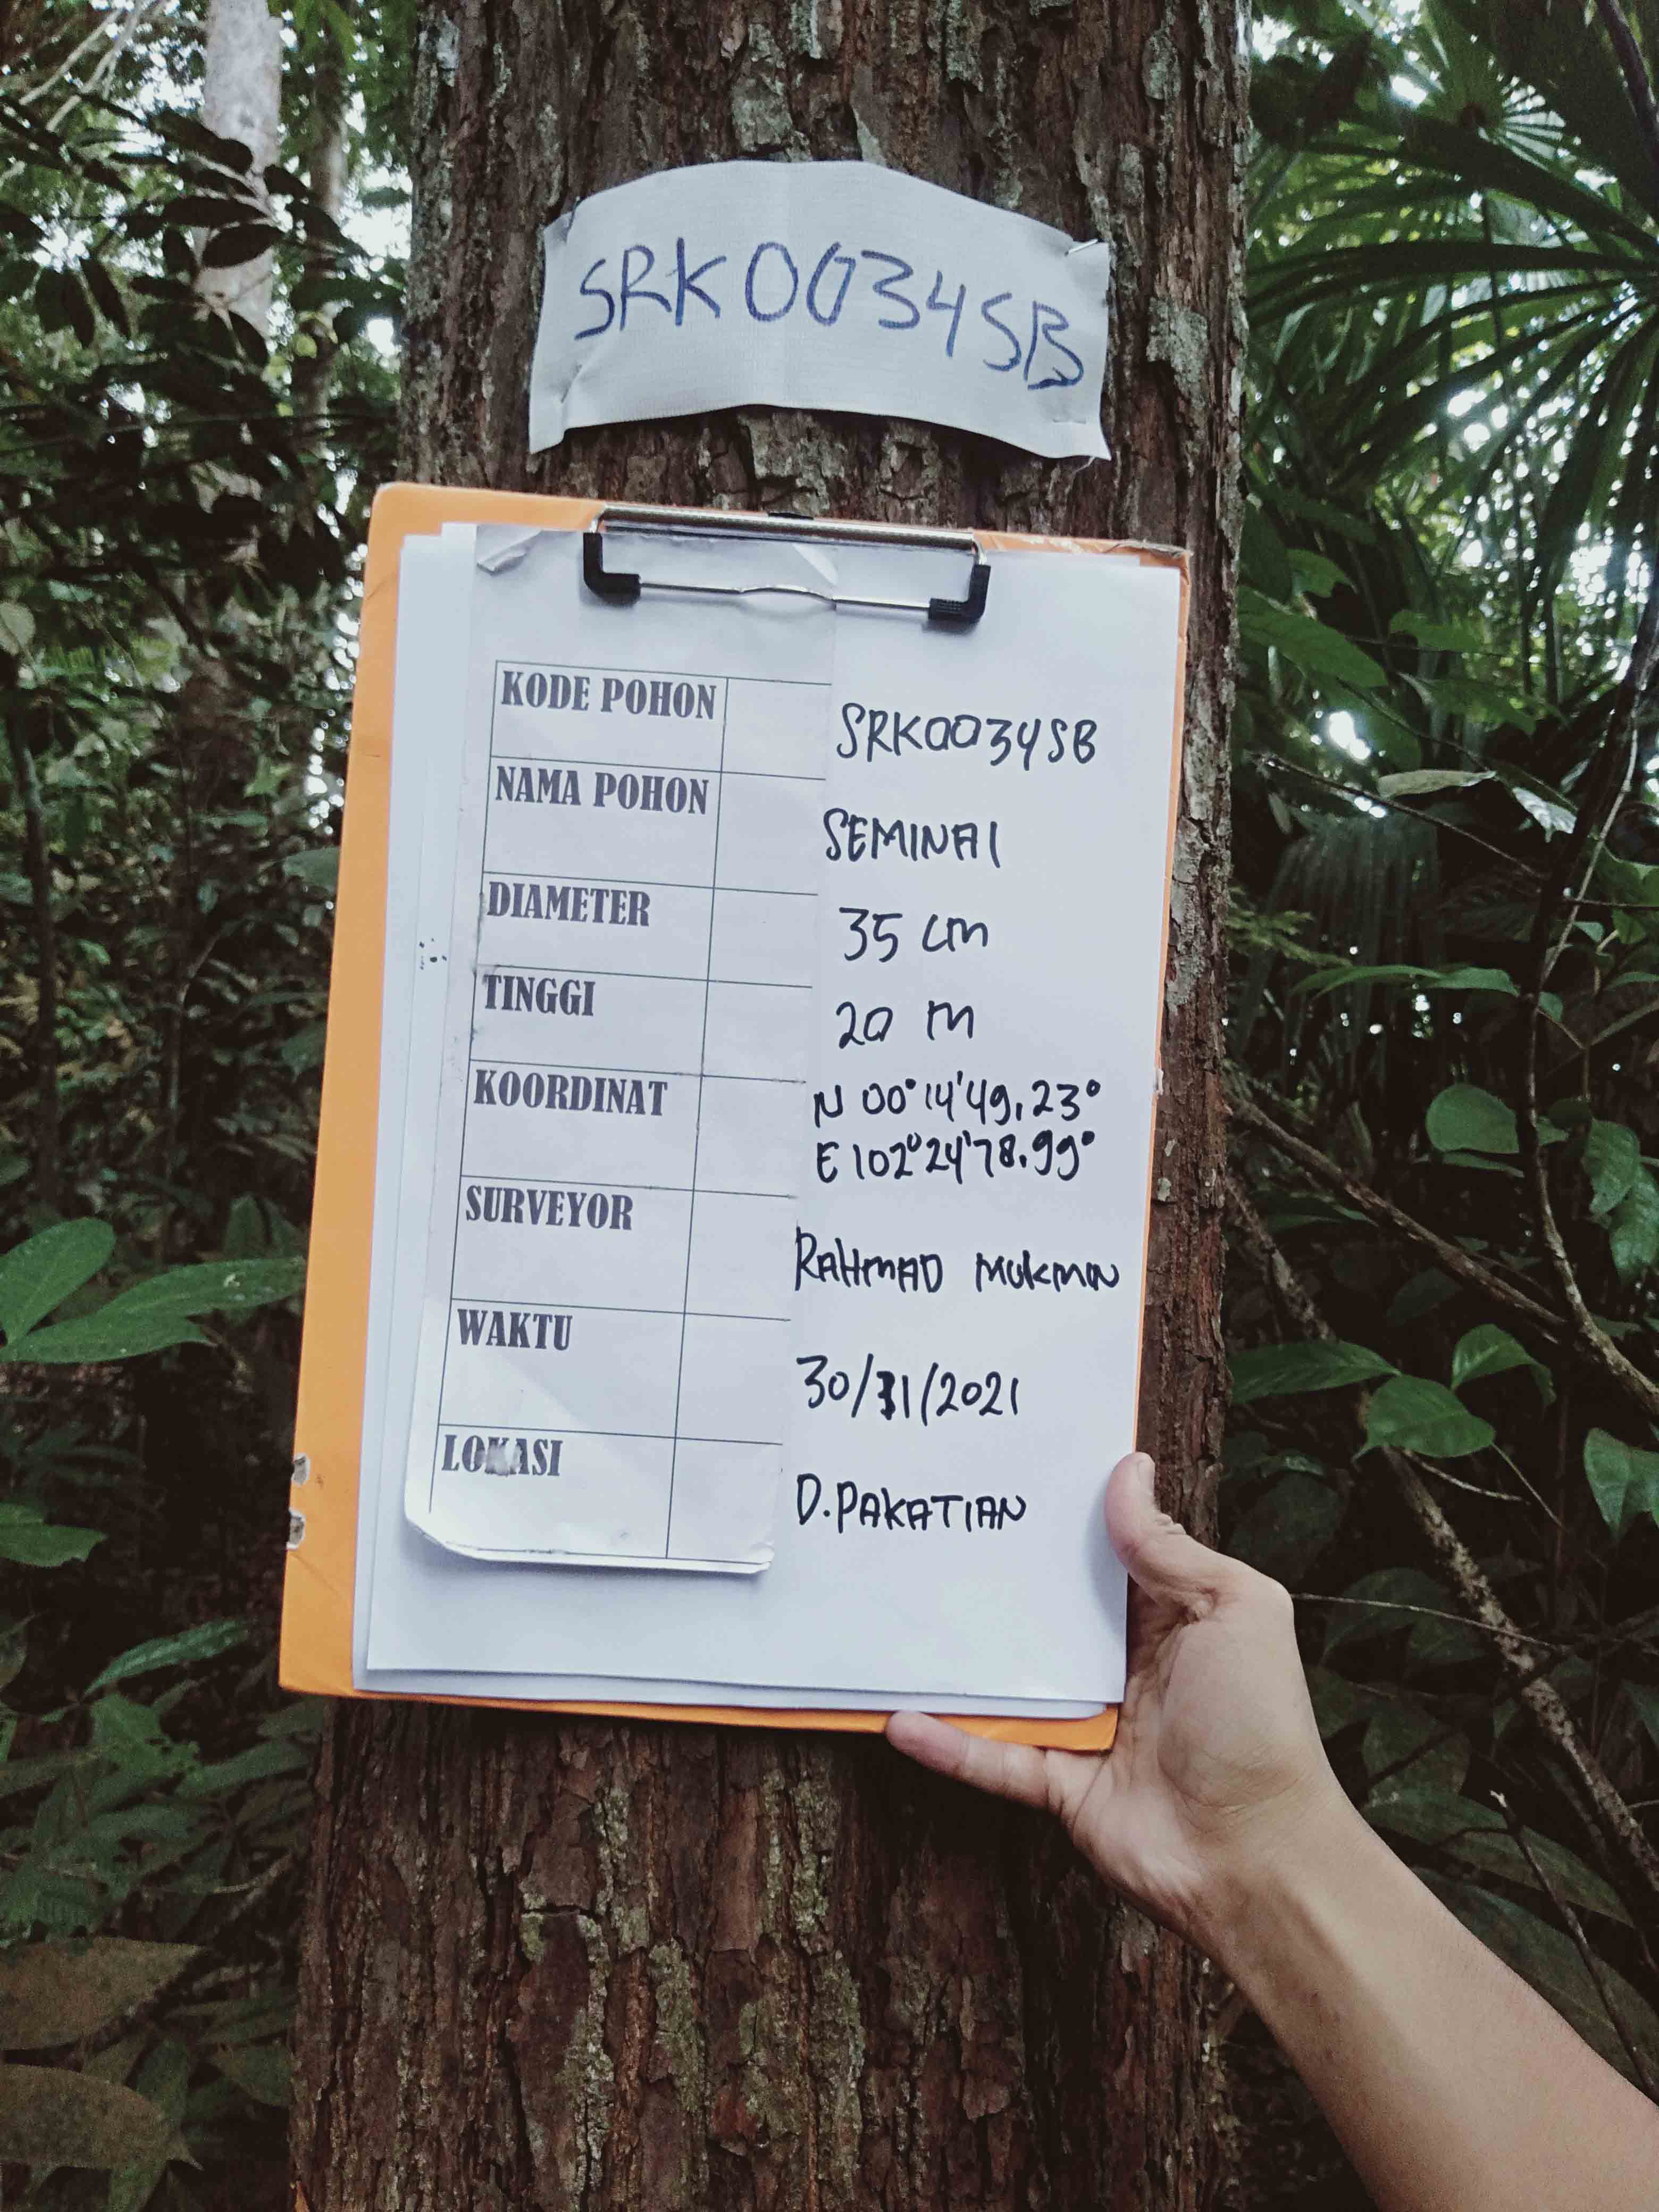 SRK0034SB
KODE POHON SRK0034SB
NAMA POHON SEMINAI
DIAMETER 35 cm
TINGGI 20 m
KOORDINAT N 00°14'49,23°
E 102°24'78.99°
SURVEYOR RAHMAD MUKMIN
WAKTU 30/31/2021
LOKASI D.PAKATIAN